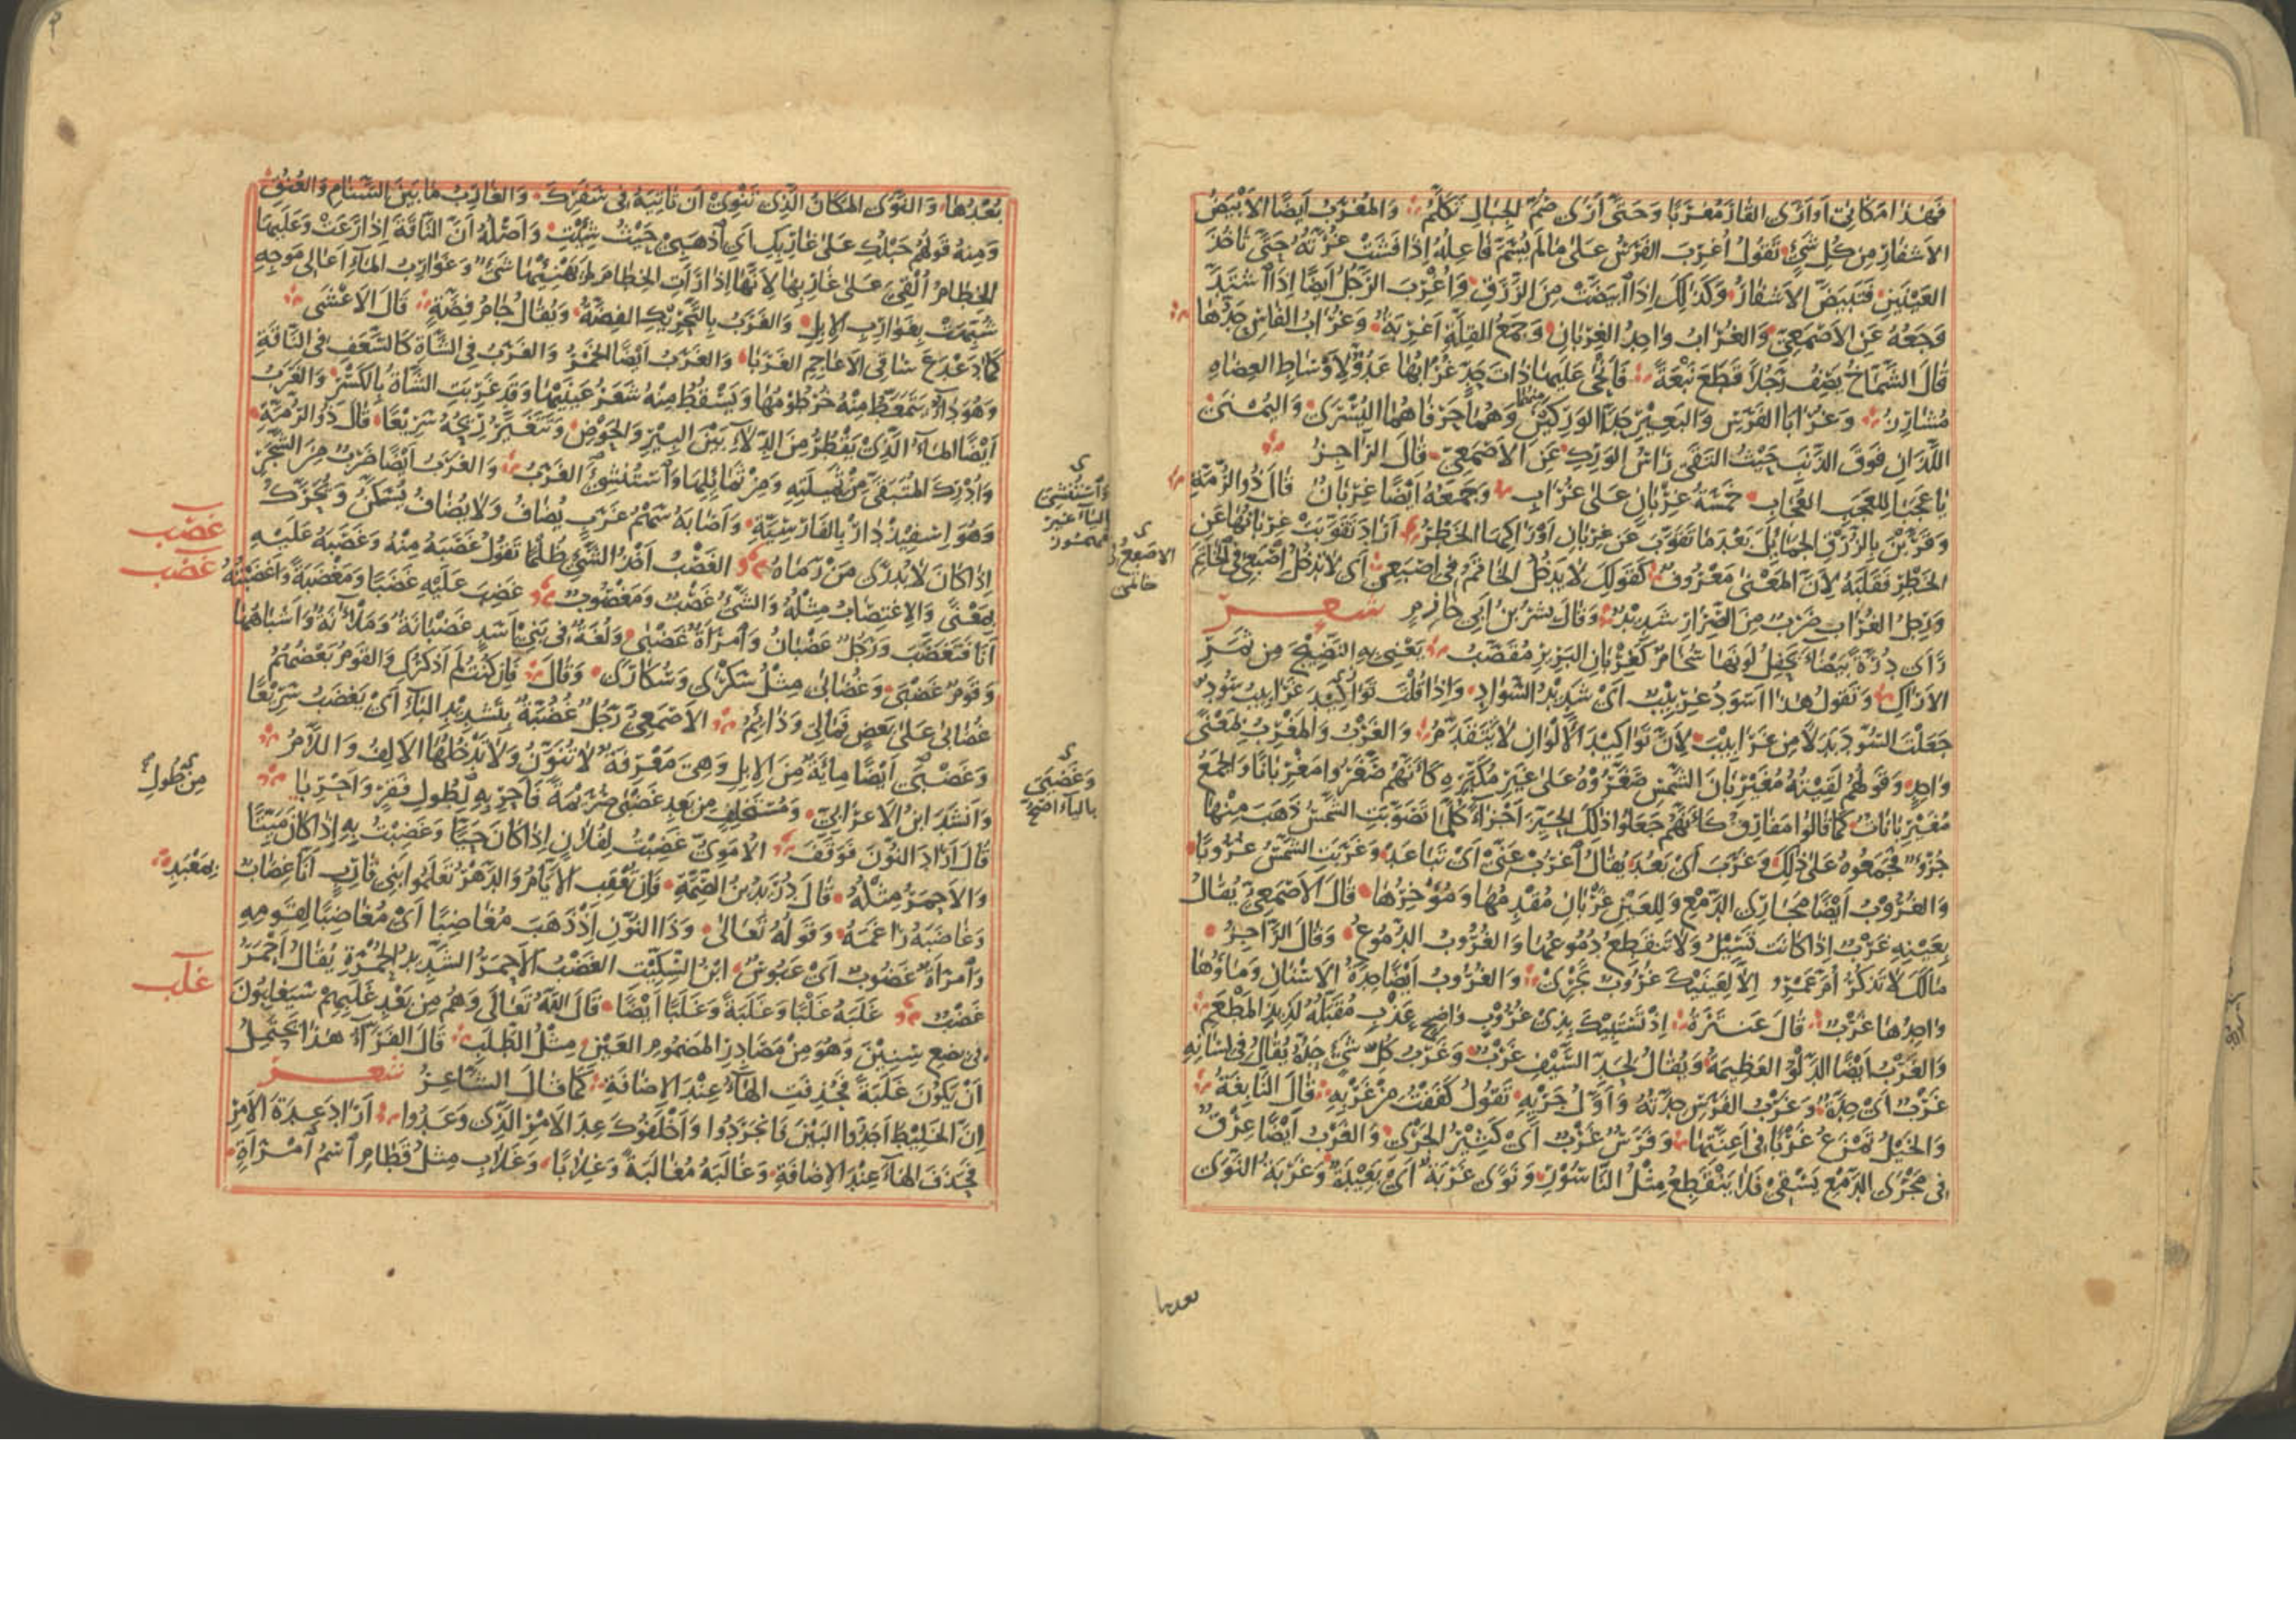 فَهٰذَا مَكَانِيَ أَوْ أَرَى القَارَ مُغْرَبًا وَحَتَّى أَرَى صُمَّ الجِبَالِ تَكَلَّمُ وَالمُغْرَبُ أَيْضًا الأَبْيَضُ
الأَشْفَارِ مِنْ كُلِّ شَيْءٍ تَقُولُ أُغْرِبَ الفَرَسُ عَلَى مَا لَمْ يُسَمَّ فَاعِلُهُ إِذَا فَشَتْ غُرَّتُهُ حَتَّى تَأْخُذَ
العَيْنَيْنِ فَتَبْيَضَّ الأَشْفَارُ وَكَذٰلِكَ إِذَا ابْيَضَّتْ مِنَ الزَّرَقِ وَأُغْرِبَ الرَّجُلُ أَيْضًا إِذَا اشْتَدَّ
وَجَعُهُ عَنِ الأَصْمَعِيِّ وَالغُرَابُ وَاحِدُ الغِرْبَانِ وَجَمْعُ القِلَّةِ أَغْرِبَةٌ وَغُرَابُ الفَأْسِ حَدُّهَا
قَالَ الشَّمَّاخُ يَصِفُ رَجُلًا قَطَعَ نَبْعَةً فَأَنْحَى عَلَيْهَا ذَاتَ حَدٍّ غُرَابُهَا عَدُوٌّ لِأَوْسَاطِ العِضَاهِ
مُشَارِزُ وَغُرَابَا الفَرَسِ وَالبَعِيْرِ حَدَّا الوَرِكَيْنِ وَهُمَا حَرْفَاهُمَا اليُسْرَى وَاليُمْنَى
اللَّذَانِ فَوْقَ الذَّنَبِ حَيْثُ التَقَى رَأْسُ الوَرِكِ عَنِ الأَصْمَعِيِّ قَالَ الرَّاجِزُ
يَا عَجَبًا لِلْعَجَبِ العُجَابِ خَمْسَةُ غِرْبَانٍ عَلَى غُرَابِ وَجَمْعُهُ أَيْضًا غِرْبَانٌ قَالَ ذُو الرُّمَّةِ
وَقَرَّبْنَ بِالزُّرْقِ الجَمَائِلَ بَعْدَ مَا تَقَوَّبَ عَنْ غِرْبَانِ أَوْرَاكِهَا الخَطْرُ أَرَادَ تَقَوَّبَتْ غِرْبَانُهَا عَنِ
الخَطْرِ فَقَلَبَهُ لِأَنَّ المَعْنَى مَعْرُوفٌ كَقَوْلِكَ لَا يَدْخُلُ الخَاتَمُ فِي إِصْبَعِي أَيْ لَا يَدْخُلُ إِصْبَعِي فِي الخَاتَمِ
وَرِجْلُ الغُرَابِ ضَرْبٌ مِنَ الصِّرَارِ شَدِيْدٌ وَقَالَ بِشْرُ بْنُ أَبِي خَازِمٍ شعر
رَأَى دُرَّةً بَيْضَاءَ يَحْفِلُ لَوْنَهَا سُخَامٌ كَغِرْبَانِ البَرِيْرِ مُقَصَّبُ يَعْنِي بِهِ النَّضِيْجَ مِنْ ثَمَرِ
الأَرَاكِ وَتَقُولُ هٰذَا أَسْوَدُ غِرْبِيْبٌ أَيْ شَدِيْدُ السَّوَادِ وَإِذَا قُلْتَ غَرَابِيْبُ سُودٌ
جَعَلْتَ السُّوْدَ بَدَلًا مِنْ غَرَابِيْبَ لِأَنَّ تَوَاكِيْدَ الأَلْوَانِ لَا يَتَقَدَّمُ وَالغَرْبُ وَالمَغْرِبُ بِمَعْنًى
وَاحِدٍ وَقَوْلُهُمْ لَقِيْتُهُ مُغَيْرِبَانَ الشَّمْسِ صَغَّرُوْهُ عَلَى غَيْرِ مُكَبَّرِهِ كَأَنَّهُمْ صَغَّرُوا مَغْرِبَانًا وَالجَمْعُ
مُغَيْرِبَانَاتٌ كَمَا قَالُوا مَفَارِقُ كَأَنَّهُمْ جَعَلُوا ذٰلِكَ الحَيِّزَ أَجْزَاءً كُلَّمَا تَصَوَّبَتِ الشَّمْسُ ذَهَبَ مِنْهَا
جُزْءٌ فَجَمَعُوهُ عَلَى ذٰلِكَ وَغَرَبَ أَيْ بَعُدَ يُقَالُ اغْرُبْ عَنِّي أَيْ تَبَاعَدْ وَغَرَبَتِ الشَّمْسُ غُرُوبًا
وَالغُرُوبُ أَيْضًا مَجَارِي الدَّمْعِ وَلِلْعَيْنِ غَرْبَانِ مُقْدِمُهَا وَمُؤْخِرُهَا قَالَ الأَصْمَعِيُّ يُقَالُ
بِعَيْنِهِ غَرْبٌ إِذَا كَانَتْ تَسِيْلُ وَلَا تَنْقَطِعُ دُمُوعُهَا وَالغُرُوبُ الدُّمُوعُ وَقَالَ الرَّاجِزُ
مَا لَكَ لَا تَذْكُرُ أُمَّ عَمْرٍو إِلَّا لِعَيْنَيْكَ غُرُوبٌ تَجْرِي وَالغُرُوبُ أَيْضًا حِدَّةُ الأَسْنَانِ وَمَاؤُهَا
وَاحِدُهَا غَرْبٌ قَالَ عَنْتَرَةُ إِذْ تَسْتَبِيْكَ بِذِي غُرُوبٍ وَاضِحٍ عَذْبٍ مُقَبَّلُهُ لَذِيْذِ المَطْعَمِ
وَالغَرْبُ أَيْضًا الدَّلْوُ العَظِيْمَةُ وَيُقَالُ لِحَدِّ السَّيْفِ غَرْبٌ وَغَرْبُ كُلِّ شَيْءٍ حَدُّهُ يُقَالُ فِي لِسَانِهِ
غَرْبٌ أَيْ حِدَّةٌ وَغَرْبُ الفَرَسِ حِدَّتُهُ وَأَوَّلُ جَرْيِهِ تَقُولُ كَفَفْتُ مِنْ غَرْبِهِ قَالَ النَّابِغَةُ
وَالخَيْلُ تَمْزَعُ غَرْبًا فِي أَعِنَّتِهَا وَفَرَسٌ غَرْبٌ أَيْ كَثِيْرُ الجَرْيِ وَالغَرْبُ أَيْضًا عِرْقٌ
فِي مَجْرَى الدَّمْعِ يَسْقِي فَلَا يَنْقَطِعُ مِثْلُ النَّاسُوْرِ وَنَوًى غَرْبَةٌ أَيْ بَعِيْدَةٌ وَغَرْبَةُ النَّوَى
بعدها
بُعْدُهَا وَالنَّوَى المَكَانُ الَّذِي تَنْوِي أَنْ تَأْتِيَهُ فِي سَفَرِكَ وَالغَارِبُ مَا بَيْنَ السَّنَامِ وَالعُنُقِ
وَمِنْهُ قَوْلُهُمْ حَبْلُكِ عَلَى غَارِبِكِ أَيِ اذْهَبِي حَيْثُ شِئْتِ وَأَصْلُهُ أَنَّ النَّاقَةَ إِذَا رَعَتْ وَعَلَيْهَا
الخِطَامُ أُلْقِيَ عَلَى غَارِبِهَا لِأَنَّهَا إِذَا رَأَتِ الخِطَامَ لَمْ يَهْنِئْهَا شَيْءٌ وَغَوَارِبُ المَاءِ أَعَالِي مَوْجِهِ
شُبِّهَتْ بِغَوَارِبِ الإِبِلِ وَالغَرَبُ بِالتَّحْرِيْكِ الفِضَّةُ وَيُقَالُ جَامُ فِضَّةٍ قَالَ الأَعْشَى
كَمَا دَعْدَعَ سَاقِي الأَعَاجِمِ الغَرَبَا وَالغَرَبُ أَيْضًا الخَمْرُ وَالغَرَبُ فِي الشَّاةِ كَالسَّعَفِ فِي النَّاقَةِ
وَهُوَ دَاءٌ يَتَمَعَّطُ مِنْهُ خُرْطُوْمُهَا وَيَسْقُطُ مِنْهُ شَعَرُ عَيْنَيْهَا وَقَدْ غَرِبَتِ الشَّاةُ بِالكَسْرِ وَالغَرَبُ
أَيْضًا المَاءُ الَّذِي يَقْطُرُ مِنَ الدِّلَاءِ بَيْنَ البِئْرِ وَالحَوْضِ وَتَتَغَيَّرُ رِيْحُهُ سَرِيْعًا قَالَ ذُو الرُّمَّةِ
وَأُدْرِكَ المُتَبَقَّى مِنْ ثَمِيْلَتِهِ وَمِنْ ثَمَائِلِهَا وَاسْتُنْشِئَ الغَرَبُ وَالغَرَبُ أَيْضًا ضَرْبٌ مِنَ الشَّجَرِ
وَهُوَ إِسْفِيْدْدَارْ بِالفَارِسِيَّةِ وَأَصَابَهُ سَهْمُ غَرَبٍ يُضَافُ وَلَا يُضَافُ يُسَكَّنُ وَيُحَرَّكُ
إِذَا كَانَ لَا يُدْرَى مَنْ رَمَاهُ الغَصْبُ أَخْذُ الشَّيْءِ ظُلْمًا تَقُولُ غَصَبَهُ مِنْهُ وَغَصَبَهُ عَلَيْهِ
بِمَعْنًى وَالاِغْتِصَابُ مِثْلُهُ وَالشَّيْءُ غَصْبٌ وَمَغْصُوبٌ غَضِبَ عَلَيْهِ غَضَبًا وَمَغْضَبَةً وَأَغْضَبْتُهُ
أَنَا فَتَغَضَّبَ وَرَجُلٌ غَضْبَانُ وَامْرَأَةٌ غَضْبَى وَلُغَةٌ فِي بَنِي أَسَدٍ غَضْبَانَةٌ وَمَلْآنَةٌ وَأَشْبَاهُهُمَا
وَقَوْمٌ غَضْبَى وَغَضَابَى مِثْلُ سَكْرَى وَسَكَارَى وَقَالَ فَإِنْ كُنْتُ لَمْ أَذْكُرْكِ وَالقَوْمُ بَعْضُهُمْ
غَضَابَى عَلَى بَعْضٍ فَمَا لِي وَذَائِمُ الأَصْمَعِيُّ رَجُلٌ غُضُبَّةٌ بِتَشْدِيْدِ البَاءِ أَيْ يَغْضَبُ سَرِيْعًا
وَغَضْبَى أَيْضًا مِائَةٌ مِنَ الإِبِلِ وَهِيَ مَعْرِفَةٌ لَا تُنَوَّنُ وَلَا تَدْخُلُهَا الأَلِفُ وَاللَّامُ
وَأَنْشَدَ ابْنُ الأَعْرَابِيِّ وَمُسْتَخْلِفٍ مِنْ بَعْدِ غَضْبَى صُرَيْمَةً فَأَحْرِ بِهِ لِطُولِ فَقْرٍ وَأَحْرِيَا
قَالَ أَرَادَ النُّونَ فَوَقَفَ الأُمَوِيُّ غَضِبْتُ لِفُلَانٍ إِذَا كَانَ حَيًّا وَغَضِبْتُ بِهِ إِذَا كَانَ مَيِّتًا
وَالأَحْمَرُ مِثْلُهُ قَالَ دُرَيْدُ بْنُ الصِّمَّةِ فَإِنْ تُعْقِبِ الأَيَّامُ وَالدَّهْرُ تَعْلَمُوا بَنِي قَارِبٍ أَنَّا غِضَابٌ
وَغَاضَبَهُ رَاغَمَهُ وَقَوْلُهُ تَعَالَى وَذَا النُّونِ إِذْ ذَهَبَ مُغَاضِبًا أَيْ مُغَاضِبًا لِقَوْمِهِ
وَامْرَأَةٌ غَضُوبٌ أَيْ عَبُوسٌ ابْنُ السِّكِّيْتِ الغَضْبُ الأَحْمَرُ الشَّدِيْدُ الحُمْرَةِ يُقَالُ أَحْمَرُ
غَضْبٌ غَلَبَهُ غَلْبًا وَغَلَبَةً وَغَلَبًا أَيْضًا قَالَ اللّٰهُ تَعَالَى وَهُمْ مِنْ بَعْدِ غَلَبِهِمْ سَيَغْلِبُونَ
فِي بِضْعِ سِنِيْنَ وَهُوَ مِنْ مَصَادِرِ المَضْمُومِ العَيْنِ مِثْلُ الطَّلَبِ قَالَ الفَرَّاءُ هٰذَا يَحْتَمِلُ
أَنْ يَكُونَ غَلَبَةً فَحُذِفَتِ الهَاءُ عِنْدَ الإِضَافَةِ كَمَا قَالَ الشَّاعِرُ شعر
إِنَّ الخَلِيْطَ أَجَدُّوا البَيْنَ فَانْجَرَدُوا وَأَخْلَفُوكَ عِدَ الأَمْرِ الَّذِي وَعَدُوا أَرَادَ عِدَةَ الأَمْرِ
فَحَذَفَ الهَاءَ عِنْدَ الإِضَافَةِ وَغَالَبَهُ مُغَالَبَةً وَغِلَابًا وَغَلَابِ مِثْلُ قَطَامِ اسْمُ امْرَأَةٍ
غصب
غضب
مِنْ طُولِ
بِمَعْبَدِ
غلب